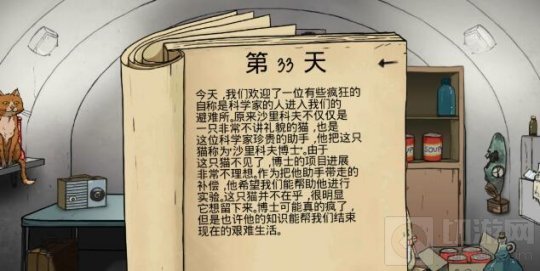 第 33 天
今天 ,我们欢迎了一位有些疯狂的
自称是科学家的人进入我们的
避难所。原来沙里科夫不仅仅是
一只非常不讲礼貌的猫 ,也是
这位科学家珍贵的助手 ,他把这只
猫称为“沙里科夫博士”。由于
这只猫不见了 ,博士的项目进展
非常不理想。作为把他助手带走的
补偿 ,他希望我们能帮助他进行
实验。这只猫并不在乎 ,很明显
它想留下来。博士可能真的疯了 ,
但是也许他的知识能帮我们结束
现在的艰难生活。
SOUP